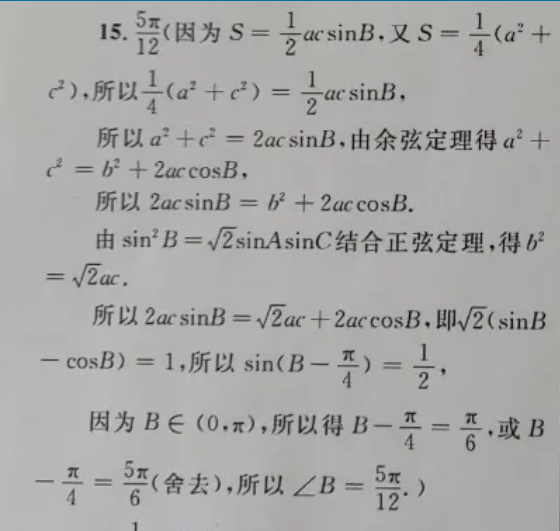 15. 5π/12(因为 S = 1/2 ac sinB,又 S = 1/4(a² +
c²),所以 1/4(a² + c²) = 1/2 ac sinB,
所以 a² + c² = 2ac sinB,由余弦定理得 a² +
c² = b² + 2ac cosB,
所以 2ac sinB = b² + 2ac cosB.
由 sin²B = √2sinAsinC结合正弦定理,得 b²
= √2ac.
所以 2ac sinB = √2ac + 2ac cosB,即√2(sinB
- cosB) = 1,所以 sin(B - π/4) = 1/2,
因为 B ∈ (0,π),所以得 B - π/4 = π/6,或 B
- π/4 = 5π/6(舍去),所以 ∠B = 5π/12.)